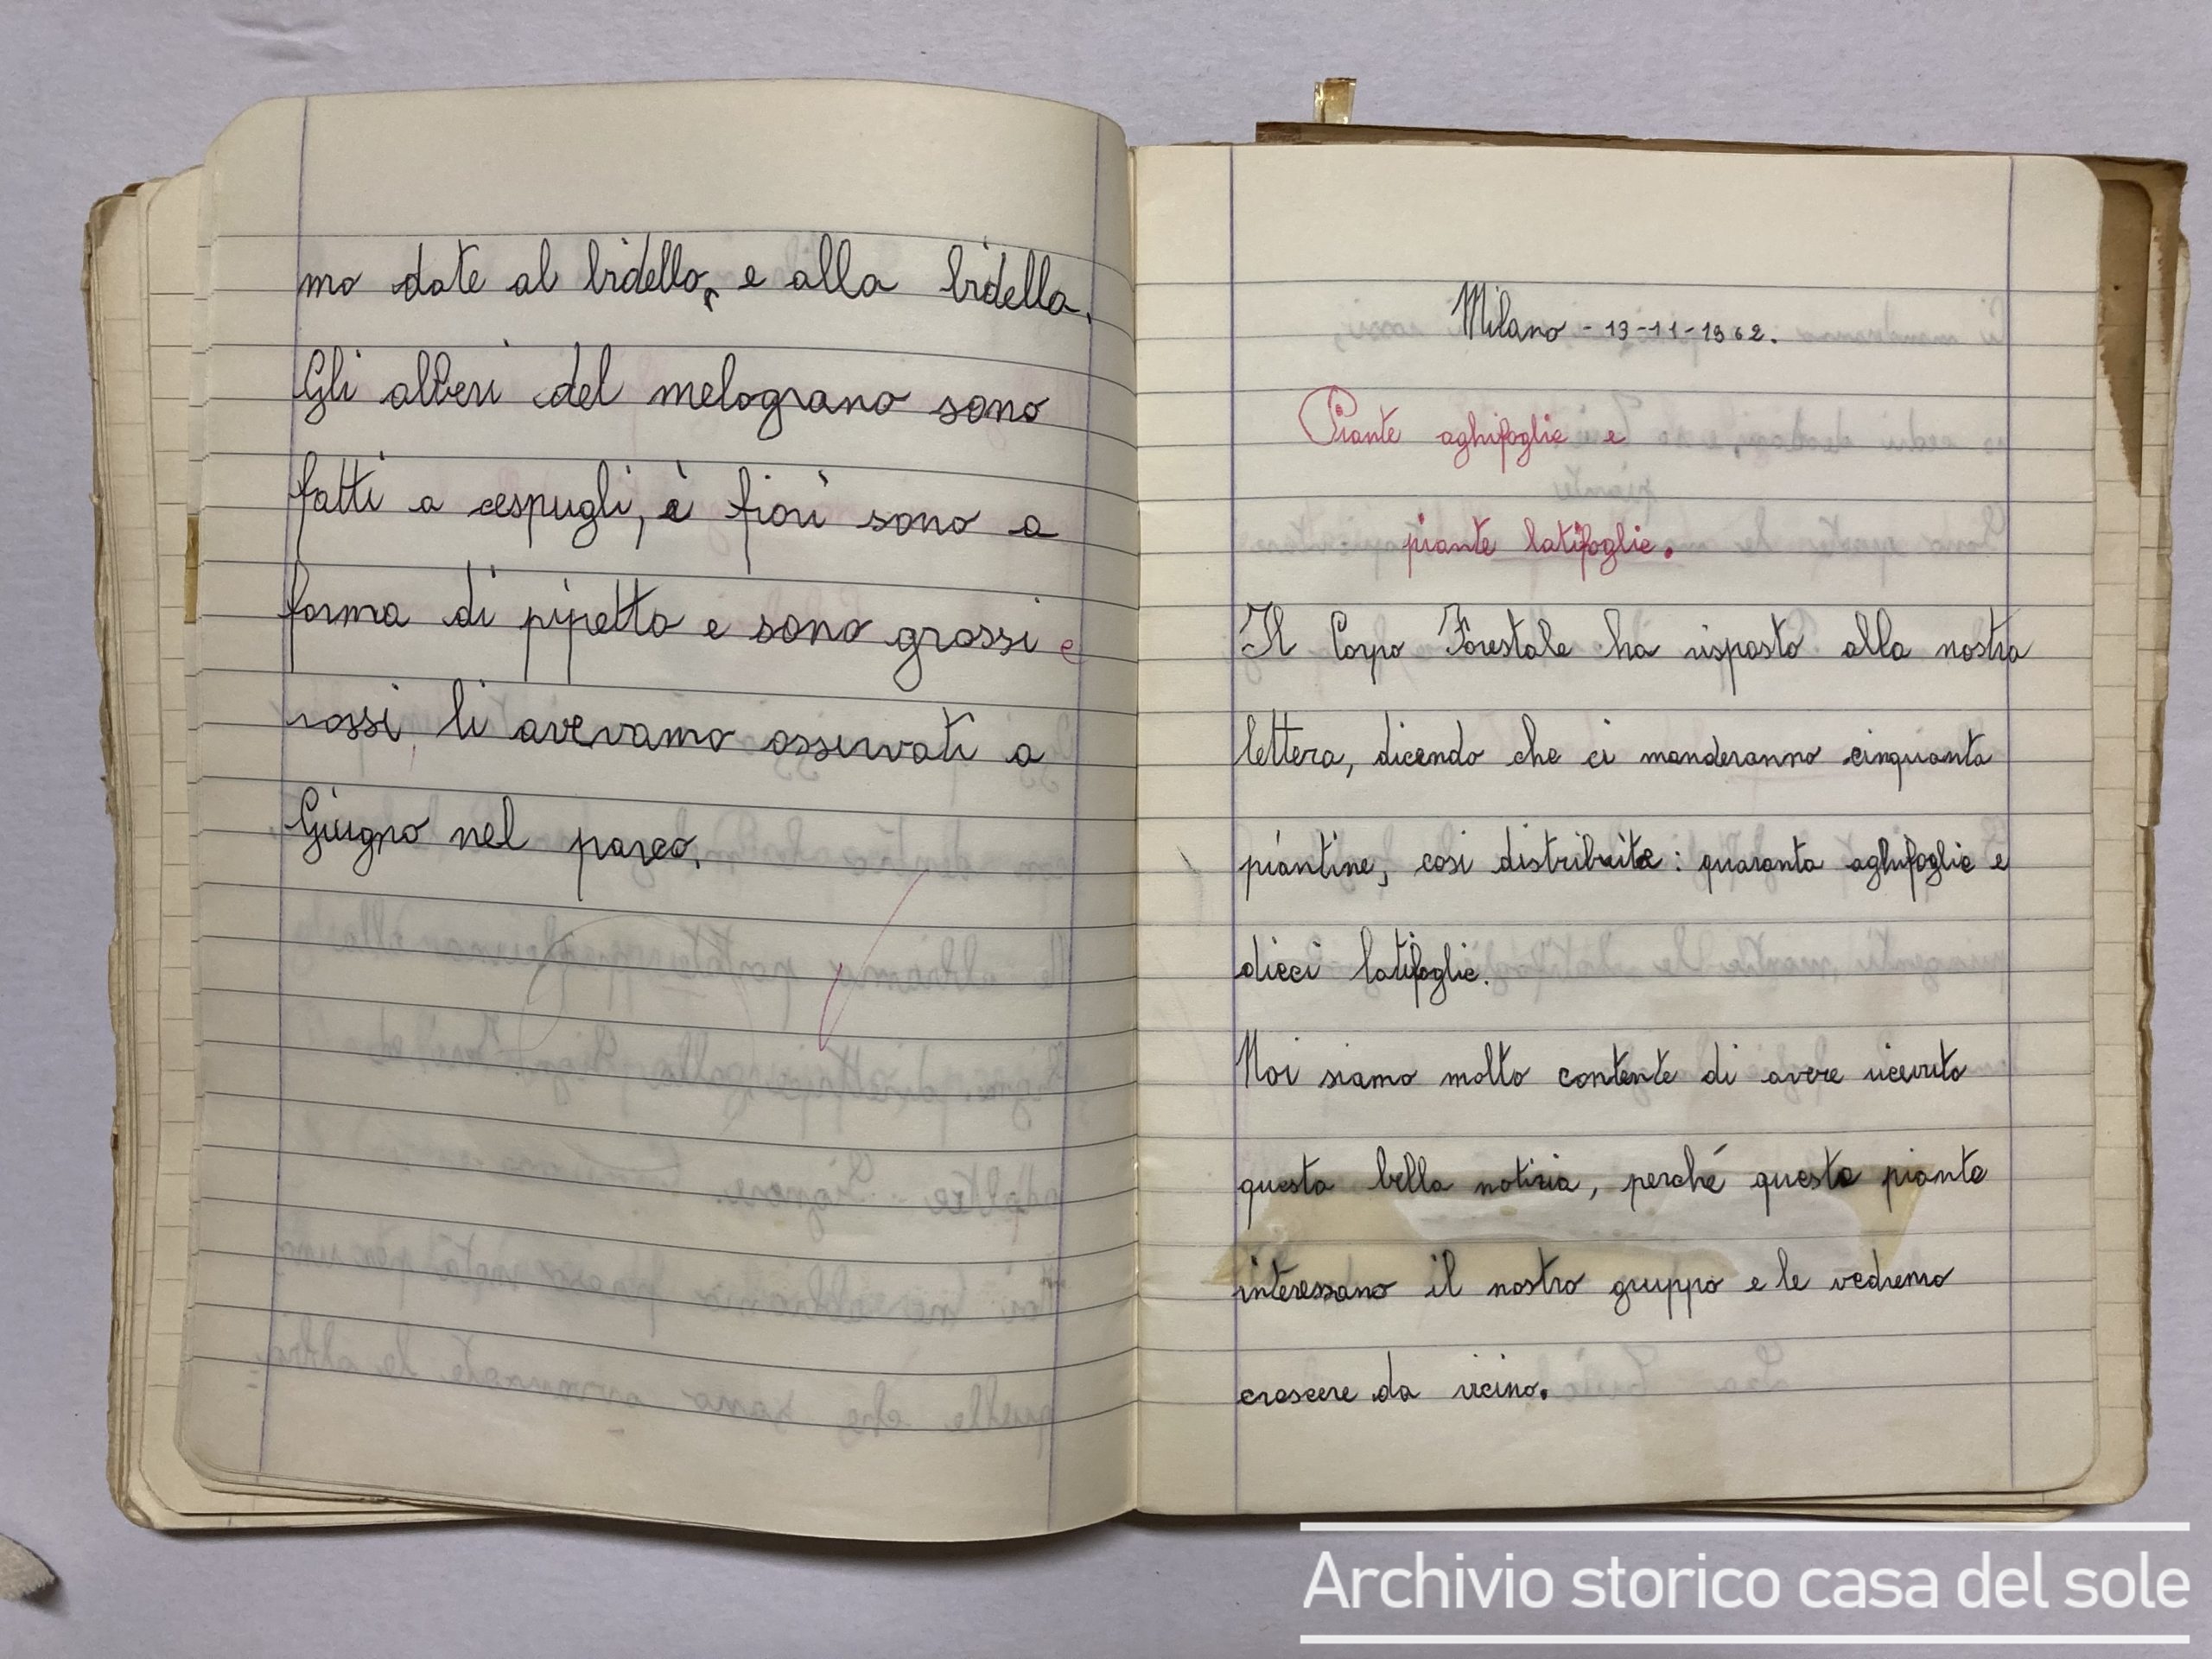 mo date al bidello, e alla bidella.
Gli alberi del melograno sono
fatti a cespugli, è fiori sono a
forma di pipetta e sono grossi e
rossi, li avevamo osservati a
Giugno nel parco.
Milano - 13-11-1962.
Piante aghifoglie e
piante latifoglie.
Il Corpo Forestale ha risposto alla nostra
lettera, dicendo che ci manderanno cinquanta
piantine, cosi distribuite: quaranta aghifoglie e
dieci latifoglie.
Noi siamo molto contente di avere ricevuto
questa bella notizia, perché queste piante
interessano il nostro gruppo e le vedremo
crescere da vicino.
Archivio storico casa del sole